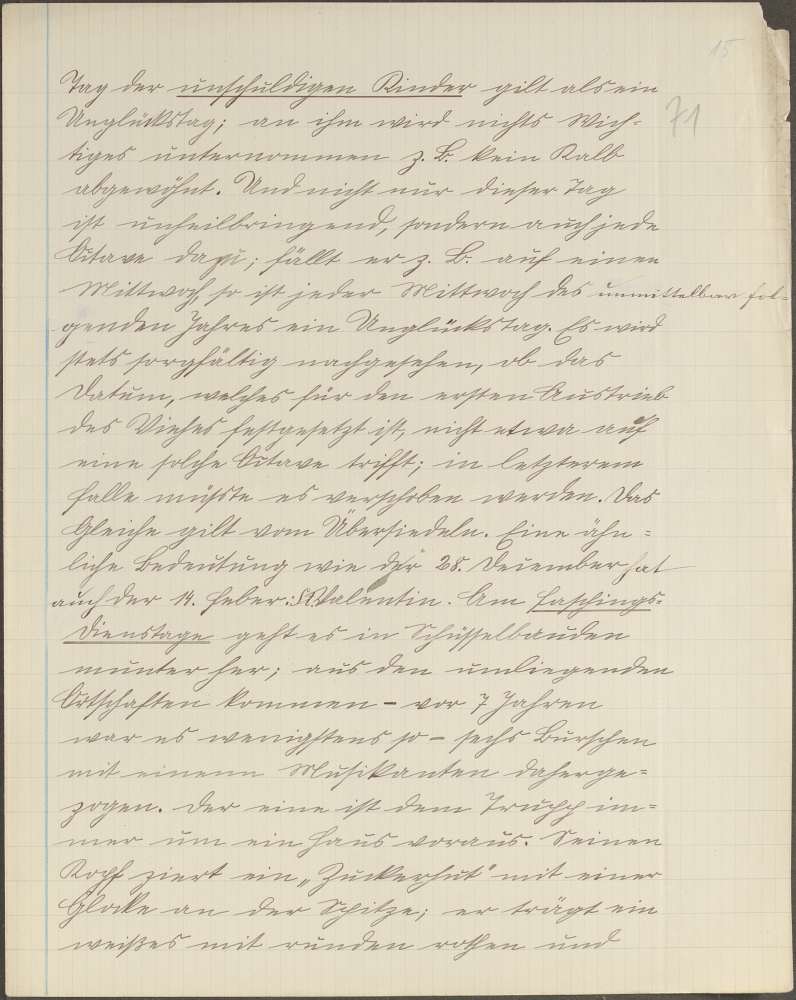 15
71
Tag der unschuldigen Kinder gilt als ein
Unglückstag; an ihm wird nichts Wich-
tiges unternommen z. B. kein Kalb
abgewöhnt. Und nicht nur dieser Tag
ist unheilbringend, sondern auch jede
Octave dazu; fällt er z. B. auf einen
Mittwoch so ist jeder Mittwoch des unmittelbar fol-
genden Jahres ein Unglückstag. Es wird
stets sorgfältig nachgesehen, ob das
Datum, welches für den ersten Austrieb
des Viehes festgesetzt ist, nicht etwa auf
eine solche Octave trifft; in letzterem
Falle müsste es verschoben werden. Das
Gleiche gilt vom Übersiedeln. Eine ähn-
liche Bedeutung wie der 28. Dezember hat
auch der 14. Feber: St. Valentin. Am Faschings-
Dienstage geht es in Schüsselbauden
munter her; aus den umliegenden
Ortschaften kommen - vor 7 Jahren
war es wenigstens so - sechs Burschen
mit einem Musikanten daherge-
zogen. Der eine ist dem Trupp im-
mer um ein Haus voraus. Seinen
Kopf ziert ein „Zuckerhut" mit einer
Glocke an der Spitze; er trägt ein
weißes mit runden rothen und